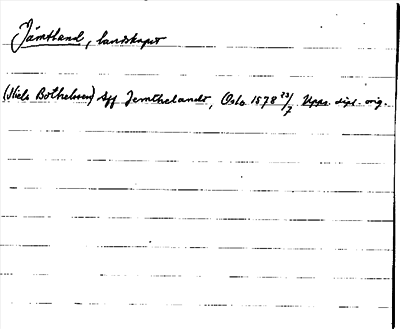 Jämtland, landskapet
(Niels Bothelssen) aff Jemthelandt, Oslo 1578 23/7 Upps. dipl. orig.